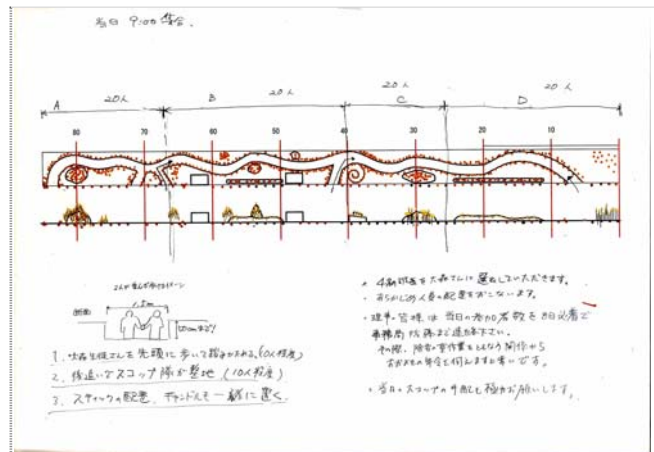 当日 9:00 集合.
A 20人 B 20人 20人 C D 20人
80 70 60 50 40 30 20 10
断面
1.5m
1. を先頭に歩いて踏みかためる.(10人程度)
2. 後追いでスコップ隊が整地 (10人程度)
3. スティックの配置、キャンドルも一緒に置く.
・4 を さんに選 していただきます。
・あらかじめ人員の配置をおこないます。
・理事・皆様は当日の参加者数を8日必着で
事務局 まで連 下さい。
その際、 作業をともなう関係から
おおよその年令も伺えますと幸いです。
・当日のスコップの手配も 願いします。